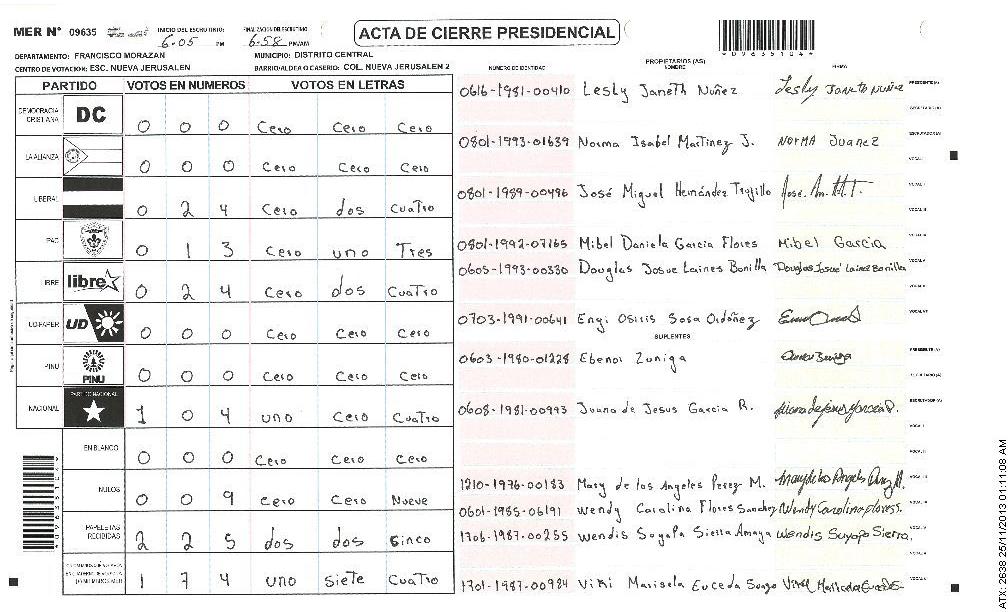 MER N° 09635 INICIO DEL ESCRUTINIO: 6:05 PM FINALIZACION DE ESCRUTINIO 6:58 PM/AM
ACTA DE CIERRE PRESIDENCIAL
DEPARTAMENTO: FRANCISCO MORAZAN MUNICIPIO: DISTRITO CENTRAL
CENTRO DE VOTACION: ESC. NUEVA JERUSALEN BARRIO/ALDEA O CASERIO: COL. NUEVA JERUSALEN 2
PARTIDO VOTOS EN NUMEROS VOTOS EN LETRAS
DEMOCRACIA CRISTIANA DC 0 0 0 Cero Cero Cero
LA ALIANZA 0 0 0 Cero Cero Cero
LIBERAL 0 2 4 Cero dos Cuatro
PAC 0 1 3 Cero uno Tres
LIBRE libre 0 2 4 Cero dos Cuatro
UD/FAPER UD 0 0 0 Cero Cero Cero
PINU PINU 0 0 0 Cero Cero Cero
NACIONAL PARTIDO NACIONAL 1 0 4 uno Cero Cuatro
EN BLANCO 0 0 0 Cero Cero Cero
NULOS 0 0 9 Cero Cero Nueve
PAPELETAS RECIBIDAS 2 2 5 dos dos Sinco
1 7 4 uno siete Cuatro
NUMERO DE IDENTIDAD PROPIETARIOS (AS) NOMBRE FIRMA
0616-1981-00410 Lesly Janeth Nuñez Lesly Janeth Nuñez
0801-1993-01639 Norma Isabel Martinez J. Norma Juanez
0801-1989-00496 José Miguel Hernández Trujillo
0801-1992-07165 Mibel Daniela Garcia Flores Mibel Garcia
0605-1993-00330 Douglas Josue Laines Bonilla Douglas Josué Laines Bonilla
0703-1991-00641 Engi Osiris Sosa Ordóñez
SUPLENTES
0603-1980-01228 Ebenor Zuniga
0608-1981-00993 Juana de Jesus Garcia R.
1210-1976-00183 Mary de los Angeles Perez M.
0601-1985-06191 Wendy Carolina Flores Sanchez Wendy Carolina Flores S.
1706-1987-00255 Wendis Suyapa Sierra Amaya Wendis Suyapa Sierra.
1701-1987-00984 Viki Marisela Euceda
ATX: 2638 25/11/2013 01:11:08 AM